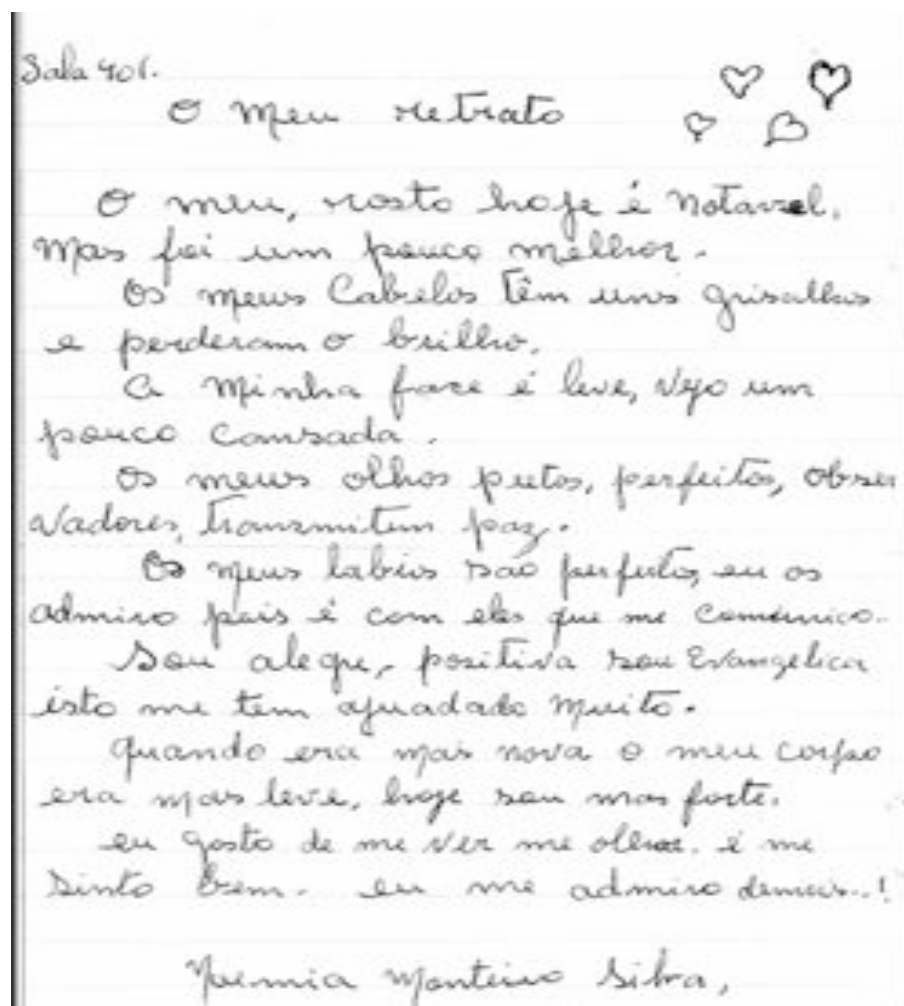 Sala 401.
O meu retrato
O meu, rosto hoje é notavel,
mas foi um pouco melhor.
Os meus Cabelos têm uns grisalhos
e perderam o brilho.
A minha face é leve, vejo um
pouco cansada.
Os meus olhos pretos, perfeitos, obser
vadores, transmitem paz.
Os meus labios são perfeitos, eu os
admiro pois é com eles que me comunico.
Sou alegre, positiva sou Evangelica
isto me tem ajuadado muito.
quando era mais nova o meu corpo
era mais leve, hoje sou mas forte.
eu gosto de me ver me olhar. e me
sinto bem. eu me admiro demais..!
Noemia Monteiro Silva,